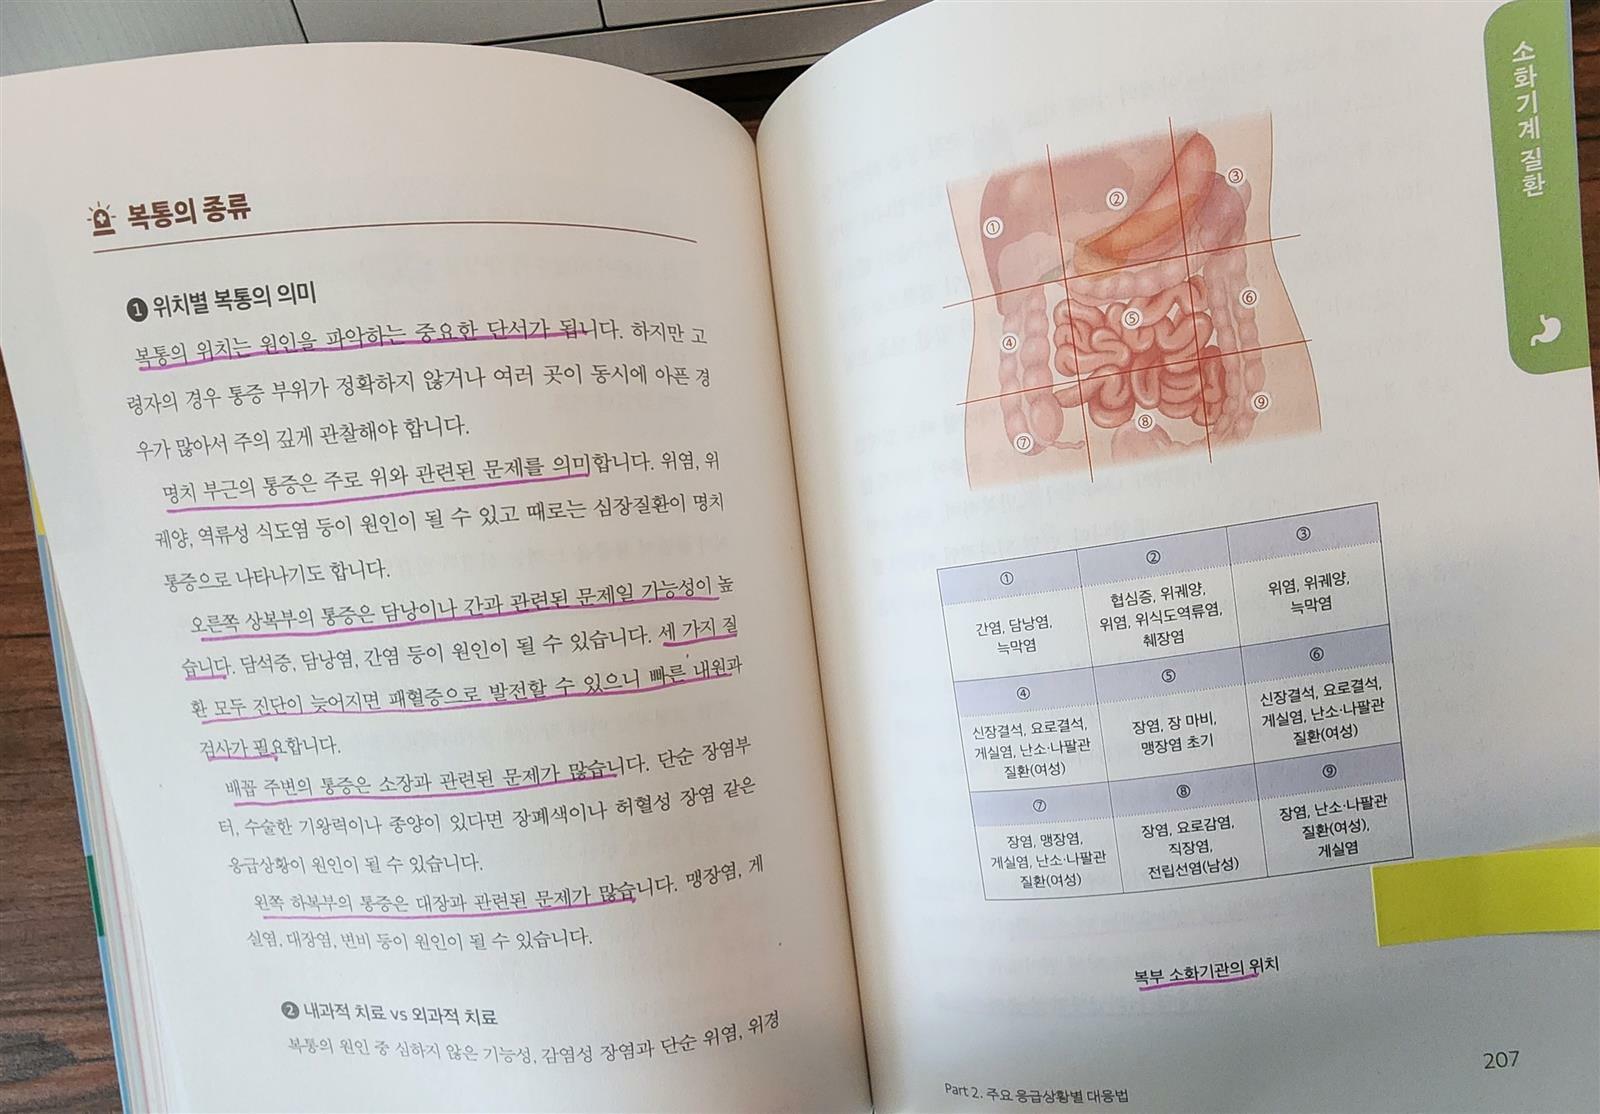 복통의 종류
❶ 위치별 복통의 의미
복통의 위치는 원인을 파악하는 중요한 단서가 됩니다. 하지만 고
령자의 경우 통증 부위가 정확하지 않거나 여러 곳이 동시에 아픈 경
우가 많아서 주의 깊게 관찰해야 합니다.
명치 부근의 통증은 주로 위와 관련된 문제를 의미합니다. 위염, 위
궤양, 역류성 식도염 등이 원인이 될 수 있고 때로는 심장질환이 명치
통증으로 나타나기도 합니다.
오른쪽 상복부의 통증은 담낭이나 간과 관련된 문제일 가능성이 높
습니다. 담석증, 담낭염, 간염 등이 원인이 될 수 있습니다. 세 가지 질
환 모두 진단이 늦어지면 패혈증으로 발전할 수 있으니 빠른 내원과
검사가 필요합니다.
배꼽 주변의 통증은 소장과 관련된 문제가 많습니다. 단순 장염부
터, 수술한 기왕력이나 종양이 있다면 장폐색이나 허혈성 장염 같은
응급상황이 원인이 될 수 있습니다.
왼쪽 하복부의 통증은 대장과 관련된 문제가 많습니다. 맹장염, 게
실염, 대장염, 변비 등이 원인이 될 수 있습니다.
❷ 내과적 치료 vs 외과적 치료
복통의 원인 중 심하지 않은 기능성, 감염성 장염과 단순 위염, 위경
소화기계 질환
① ② ③
④ ⑤ ⑥
⑦ ⑧ ⑨
①
간염, 담낭염,
늑막염
②
협심증, 위궤양,
위염, 위식도역류염,
췌장염
③
위염, 위궤양,
늑막염
④
신장결석, 요로결석,
게실염, 난소·나팔관
질환(여성)
⑤
장염, 장 마비,
맹장염 초기
⑥
신장결석, 요로결석,
게실염, 난소·나팔관
질환(여성)
⑦
장염, 맹장염,
게실염, 난소·나팔관
질환(여성)
⑧
장염, 요로감염,
직장염,
전립선염(남성)
⑨
장염, 난소·나팔관
질환(여성),
게실염
복부 소화기관의 위치
Part 2. 주요 응급상황별 대응법
207